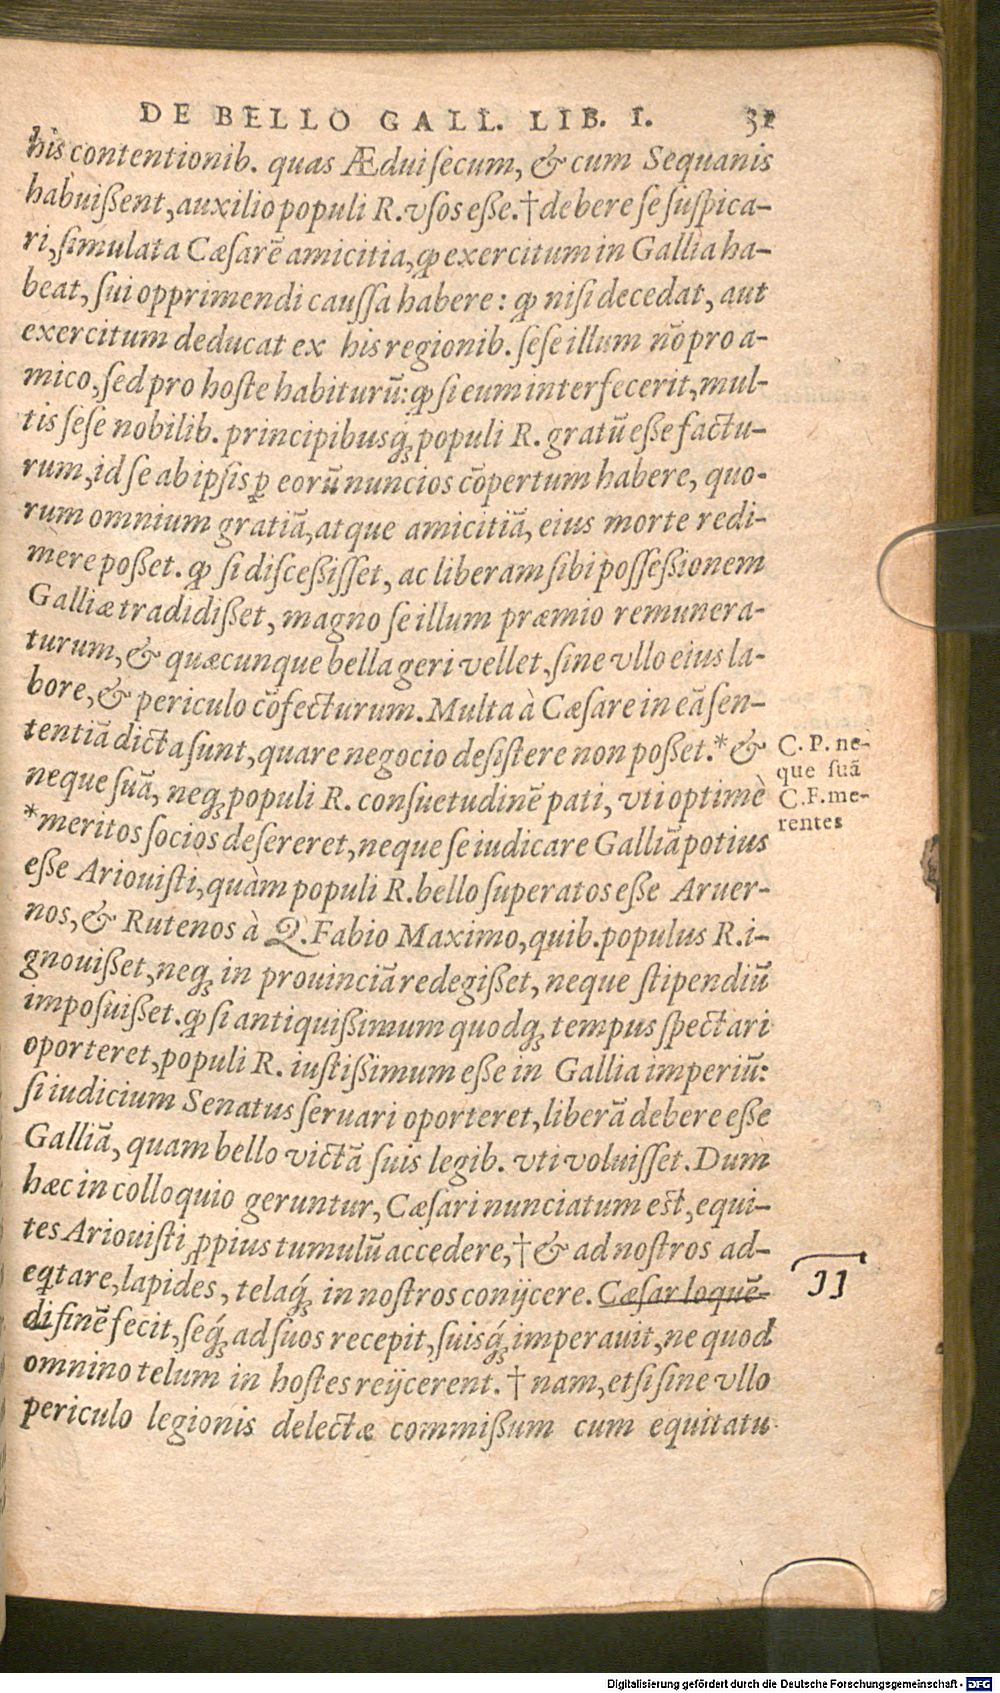 DE BELLO GALL. LIB. I. 31
his contentionib. quas Ædui secum, & cum Sequanis
habuißent, auxilio populi R. vsos eße. † debere se suspica-
ri, simulata Cæsarē amicitia, ꝙ exercitum in Gallia ha-
beat, sui opprimendi caussa habere: ꝙ nisi decedat, aut
exercitum deducat ex his regionib. sese illum nō pro a-
mico, sed pro hoste habiturū: ꝙ si eum interfecerit, mul-
tis sese nobilib. principibusq́ꝫ populi R. gratū eße factu-
rum, id se ab ipsis ꝑ eorū nuncios cōpertum habere, quo-
rum omnium gratiā, atque amicitiā, eius morte redi-
mere poßet. ꝙ si discessißet, ac liberam sibi possessionem
Galliæ tradidißet, magno se illum præmio remunera-
turum, & quæcunque bella geri vellet, sine vllo eius la-
bore, & periculo cōfecturum. Multa à Cæsare in eā sen-
tentiā dicta sunt, quare negocio desistere non poßet. * &
neque suā, neqꝫ populi R. consuetudinē pati, vti optimè
*meritos socios desereret, neque se iudicare Galliā potius
eße Ariouisti, quàm populi R. bello superatos eße Aruer-
nos, & Rutenos à Q. Fabio Maximo, quib. populus R. i-
gnouißet, neqꝫ in prouinciā redegißet, neque stipendiū
imposuißet. ꝙ si antiquißimum quodqꝫ tempus spectari
oporteret, populi R. iustißimum eße in Gallia imperiū:
si iudicium Senatus seruari oporteret, liberā debere eße
Galliā, quam bello victā suis legib. vti voluisset. Dum
hæc in colloquio geruntur, Cæsari nunciatum est, equi-
tes Ariouisti ꝓpius tumulū accedere, † & ad nostros ad-
eqtare, lapides, telaq́ꝫ in nostros conijcere. Cæsar loquē-
di finē fecit, seq́ꝫ ad suos recepit, suisq́ꝫ imperauit, ne quod
omnino telum in hostes reijcerent. † nam, etsi sine vllo
periculo legionis delectæ commißum cum equitatu
C. P. ne-
que suā
C. F. me-
rentes
JJ
Digitalisierung gefördert durch die Deutsche Forschungsgemeinschaft - DFG